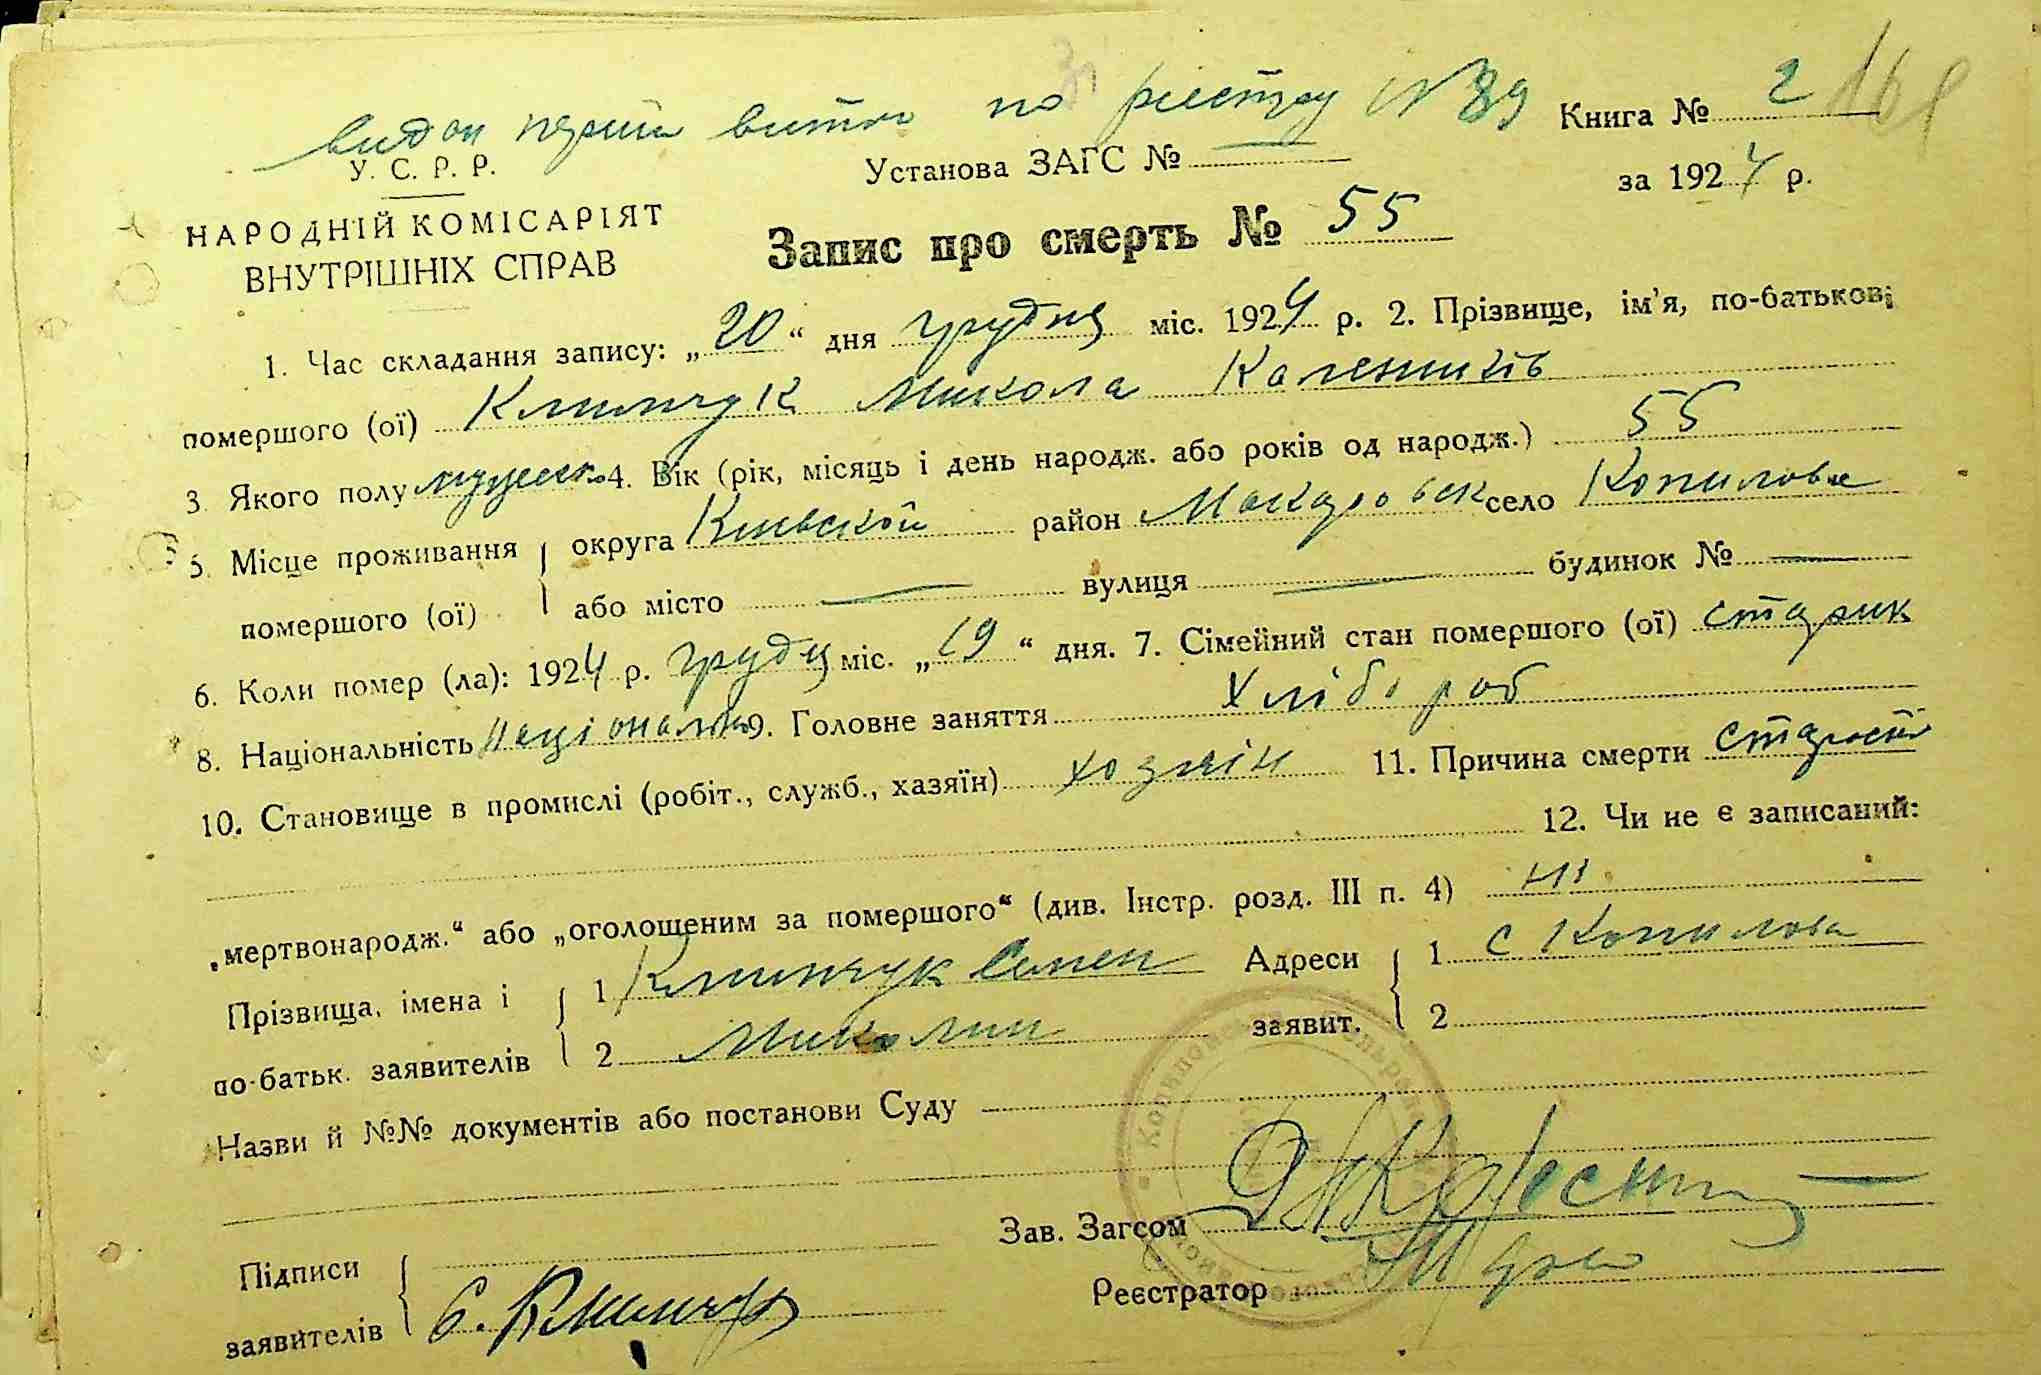 видан перший витяг по реєстру №89 Книга № 2
У. С. Р. Р. Установа ЗАГС № —
за 1924 р.
НАРОДНІЙ КОМІСАРІЯТ
ВНУТРІШНІХ СПРАВ
Запис про смерть № 55
1. Час складання запису: „20“ дня грудня міс. 1924 р. 2. Прізвище, ім’я, по-батькові
помершого (ої) Климчук Микола Калеників
3. Якого полу мужеск. 4. Вік (рік, місяць і день народж. або років од народж.) 55
5. Місце проживання округа Киевской район Макаровск село Копиловка
помершого (ої) або місто — вулиця — будинок № —
6. Коли помер (ла): 1924 р. грудня міс. „19“ дня. 7. Сімейний стан помершого (ої) старик
8. Національність 9. Головне заняття Хлібороб
10. Становище в промислі (робіт., служб., хазяїн) хозяін 11. Причина смерти
12. Чи не є записаний:
„мертвонародж.“ або „оголошеним за помершого“ (див. Інстр. розд. III п. 4) ні
Прізвища, імена і 1 Климчук Семен Адреси 1 с Копилова
по-батьк. заявителів 2 Миколин заявит. 2
Назви й №№ документів або постанови Суду
Зав. Загсом
Підписи
Реєстратор
заявителів С. Климчук